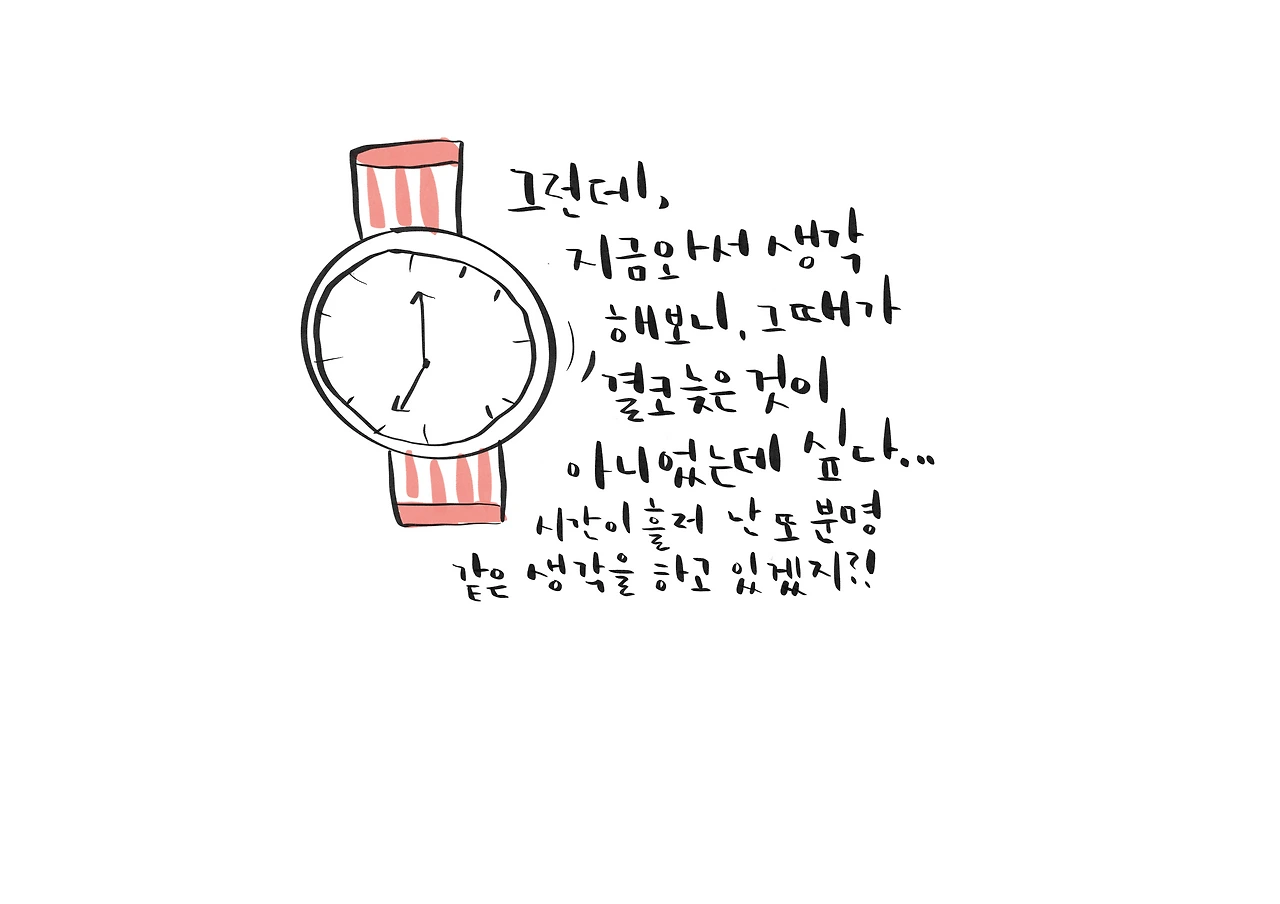 그런데,
지금와서 생각
해보니, 그때가
결코 늦은 것이
아니었는데 싶다...
시간이 흘러 난 또 분명
같은 생각을 하고 있겠지?!